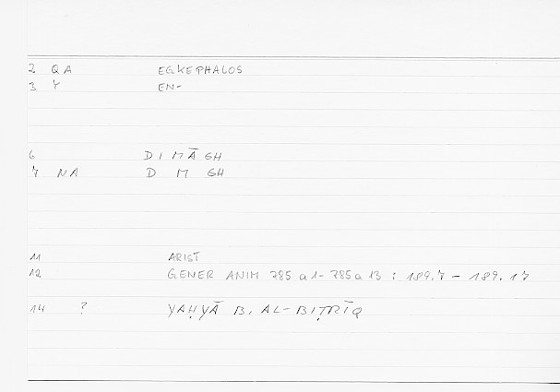 2 QA EGKEPHALOS
3 Y EN-
6 DIMĀGH
7 NA D M GH
11 ARIST
12 GENER ANIM 785 a 1 - 785 a 13 : 189.7 - 189.17
14 ? YAḤYĀ B. AL-BIṬRĪQ